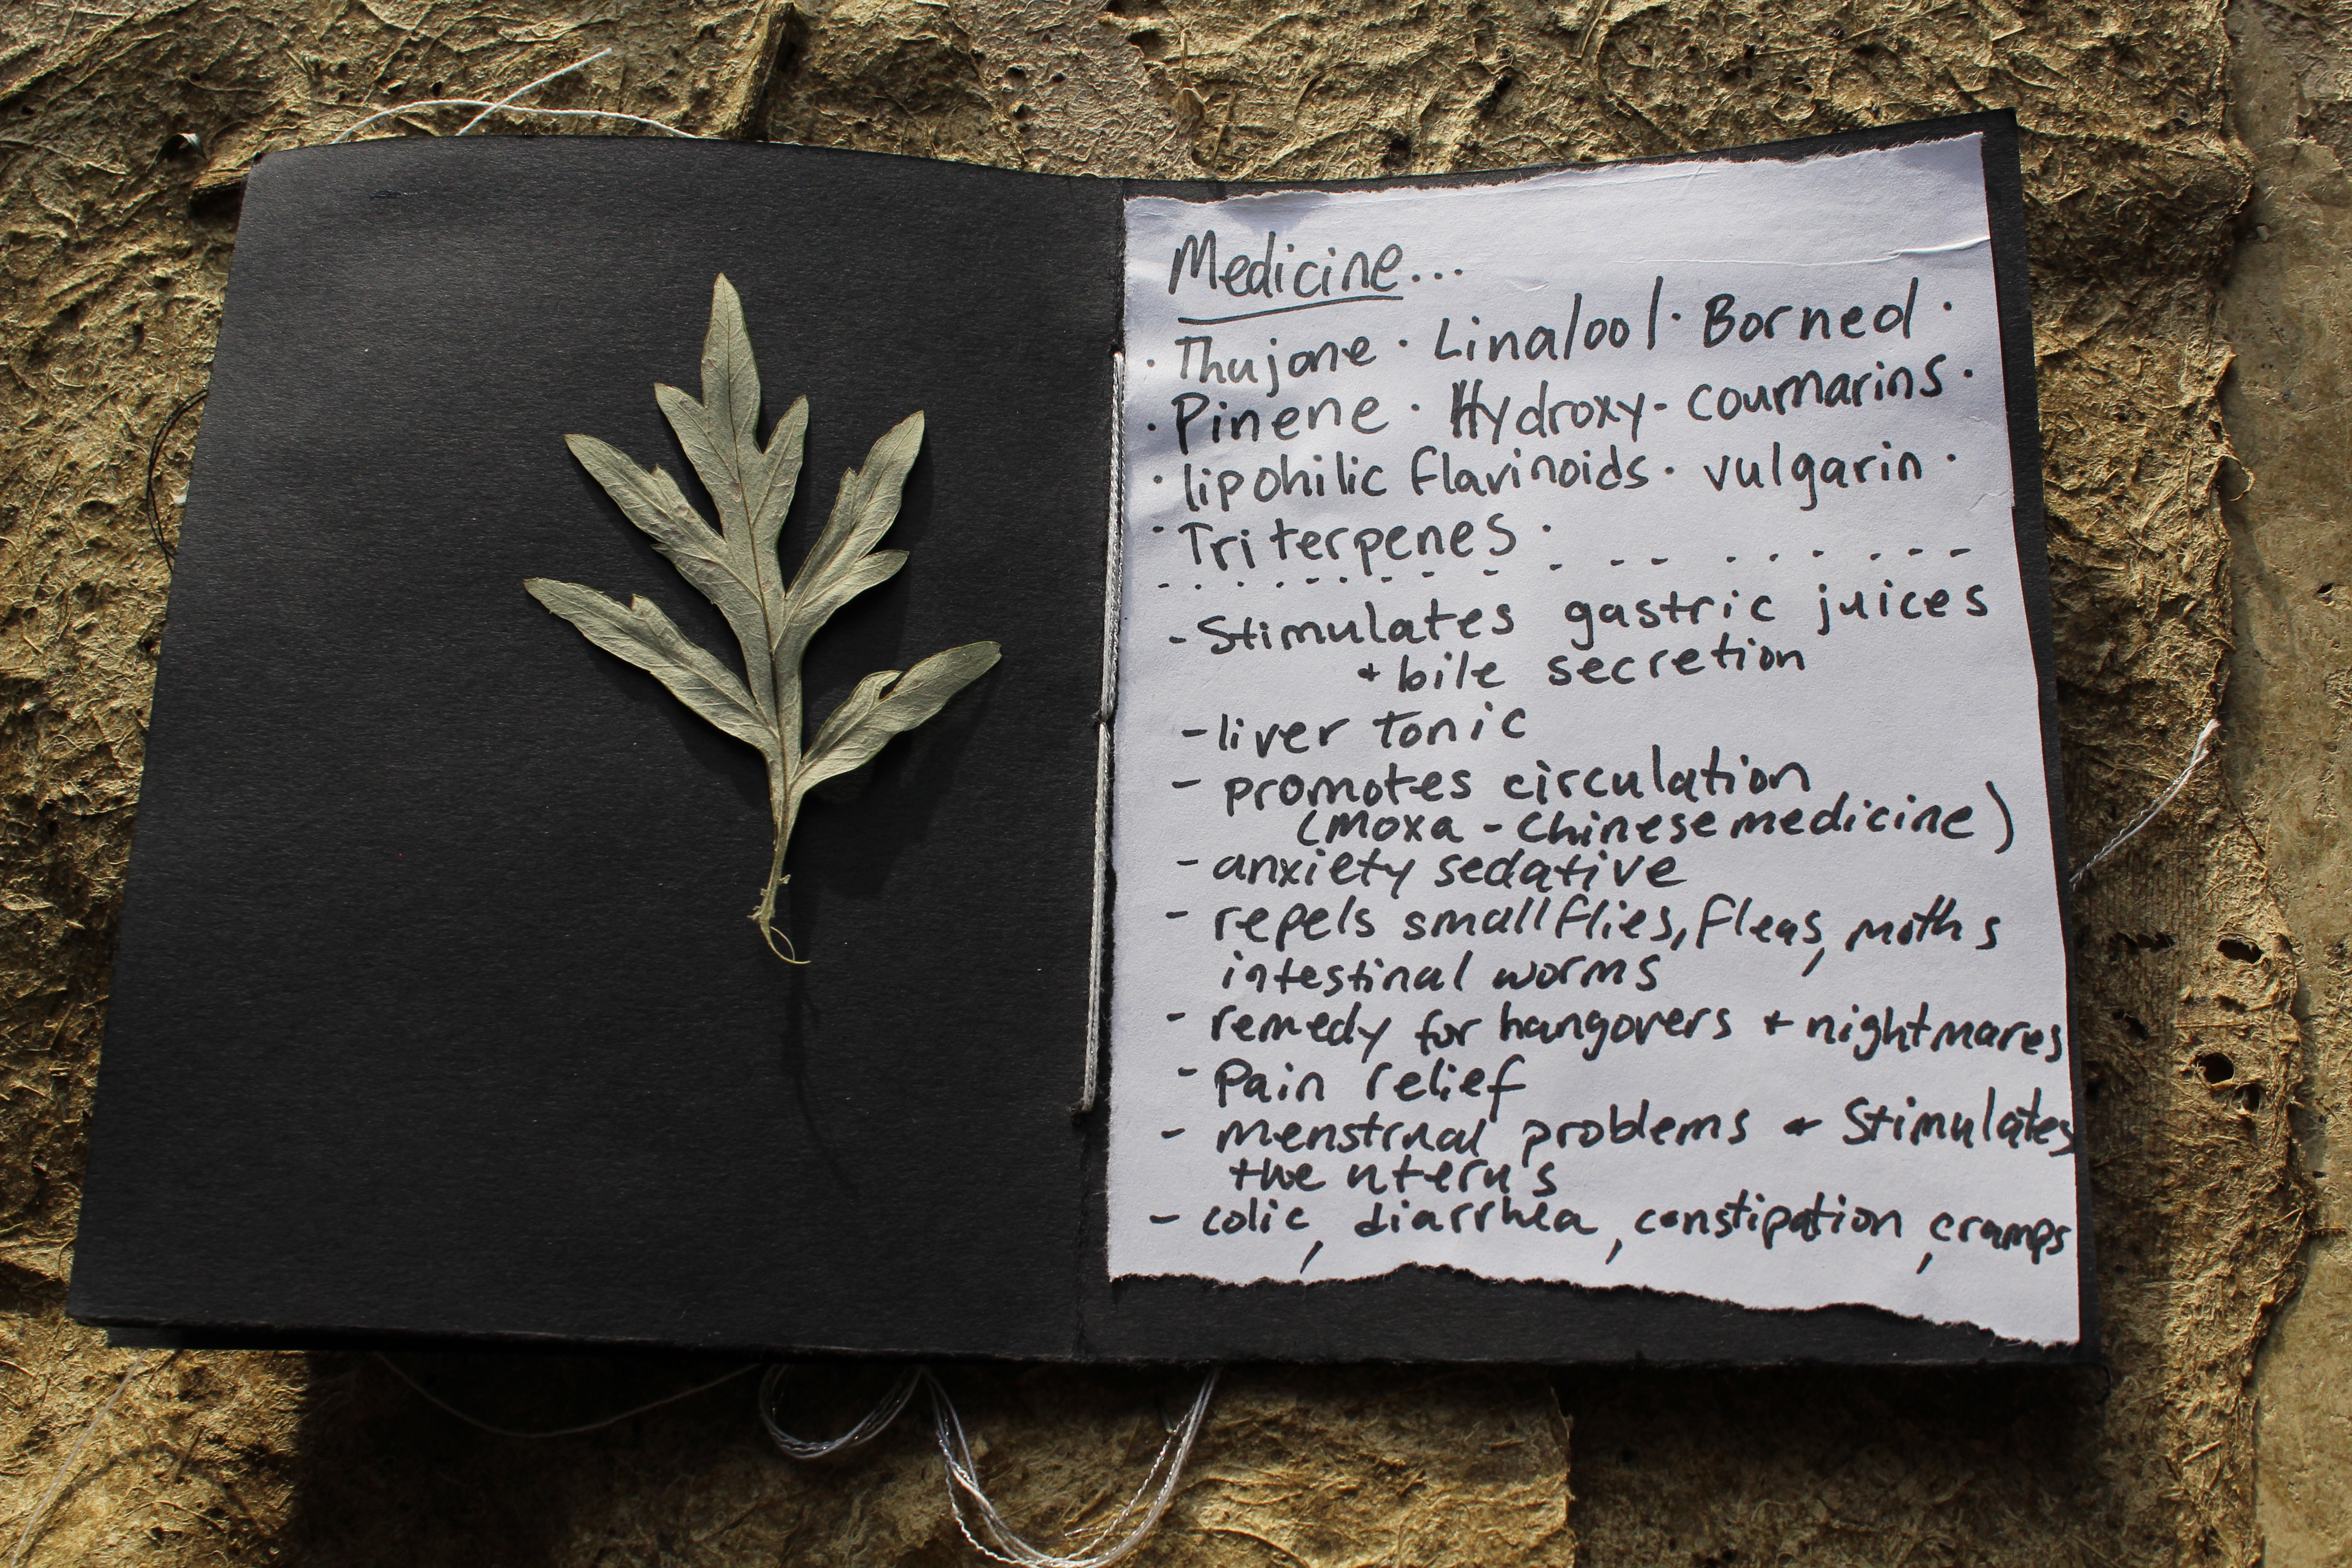 Medicine...
· Thujone · Linalool · Borneol ·
· Pinene · Hydroxy- coumarins ·
· lipohilic flavinoids · vulgarin ·
· Triterpenes ·
- Stimulates gastric juices
+ bile secretion
- liver tonic
- promotes circulation
(Moxa - Chinese medicine)
- anxiety sedative
- repels small flies, fleas, moths
intestinal worms
- remedy for hangovers + nightmares
- Pain relief
- menstrual problems + Stimulates
the uterus
- colic, diarrhea, constipation, cramps